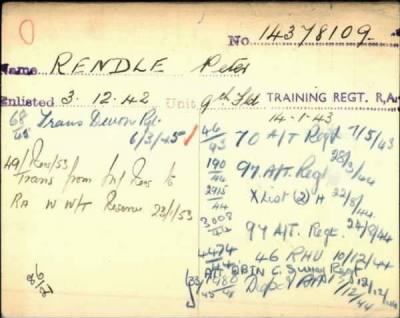 No. 14378109.
Name RENDLE Peter
Enlisted 3. 12. 42 Unit 9th Fld TRAINING REGT. R.A.
14-1-43
68/45 Trans Devon Rgt.
6/3/45
46/43 70 A/T Regt 7/5/43
190/44 97 A/T. Regt 28/3/44
2915/44 X List (2) H 22/8/44
3,008/44 97 A/T. Regt. 24/9/44
4474/44 46 RHU 10/12/44
Att
Surrey Regt
Depot RA
/12/44
49/Res/53
Trans from Inf Res to
RA W W/T Reserve 23/1/53